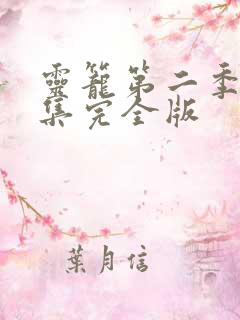 靈籠第二季
集完全版
葉月信